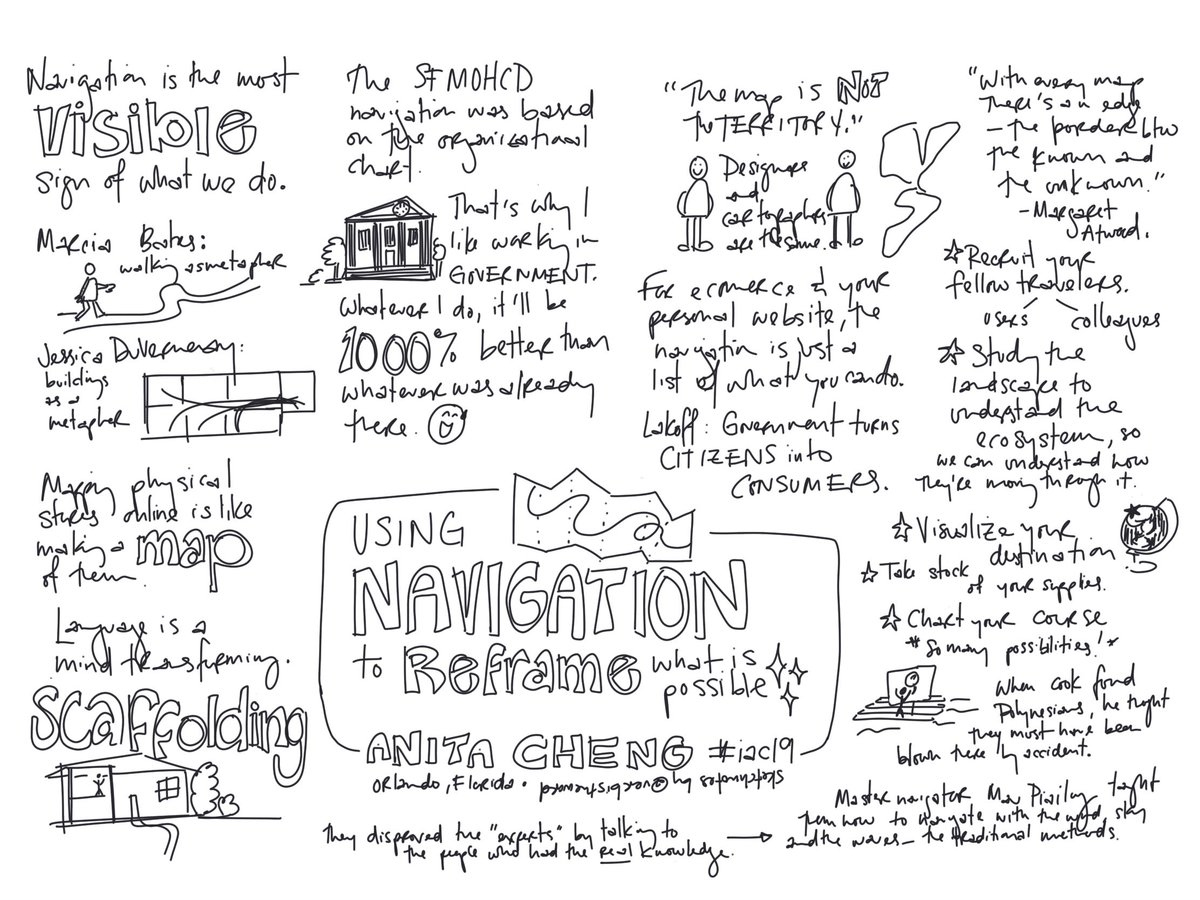 Navigation is the most
Visible
sign of what we do.
Marcia Bates:
walking as metapher
Jessica DuVerneay:
buildings
as a
metapher
Mapping physical
stores online is like
making a map
of them.
Language is a
mind transforming.
Scaffolding
The SFMOHCD
navigation was based
on the organizational
chart.
That's why I
like working in
GOVERNMENT.
Whatever I do, it'll be
1000% better than
whatever was already
there.
"The map is NOT
the TERRITORY."
Designers
and
cartographers
are the same.
For ecomerce & your
personal website, the
navigation is just a
list of what you can do.
Lakoff: Government turns
CITIZENS into
CONSUMERS.
"With every map
there's an edge
– the border btw
the known and
the unknown."
- Margaret
Atwood.
☆ Recruit your
fellow travelers.
users colleagues
☆ Study the
landscape to
understand the
ecosystem, so
we can understand how
they're moving through it.
☆ Visualize your
destination
☆ Take stock
of your supplies.
☆ Chart your course
*So many possibilities!*
When Cook found
Polynesians, he thought
they must have been
blown there by accident.
USING
NAVIGATION
to Reframe what is
possible
ANITA CHENG #iac19
Orlando, Florida • Sketchnotes by
They disproved the "experts" by talking to
the people who had the Real knowledge.
→ Master navigator Mau Piailug taught
them how to navigate with the wind, sky
and the waves – the traditional methods.